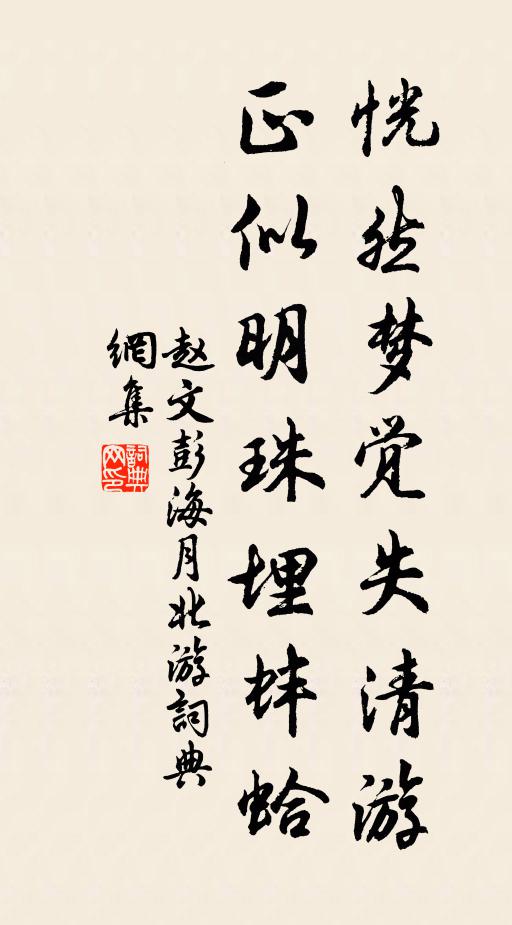 恍然梦觉失清游
正似明珠埋蚌蛤
赵文彭海月北游詞典
網集
詞典
网印